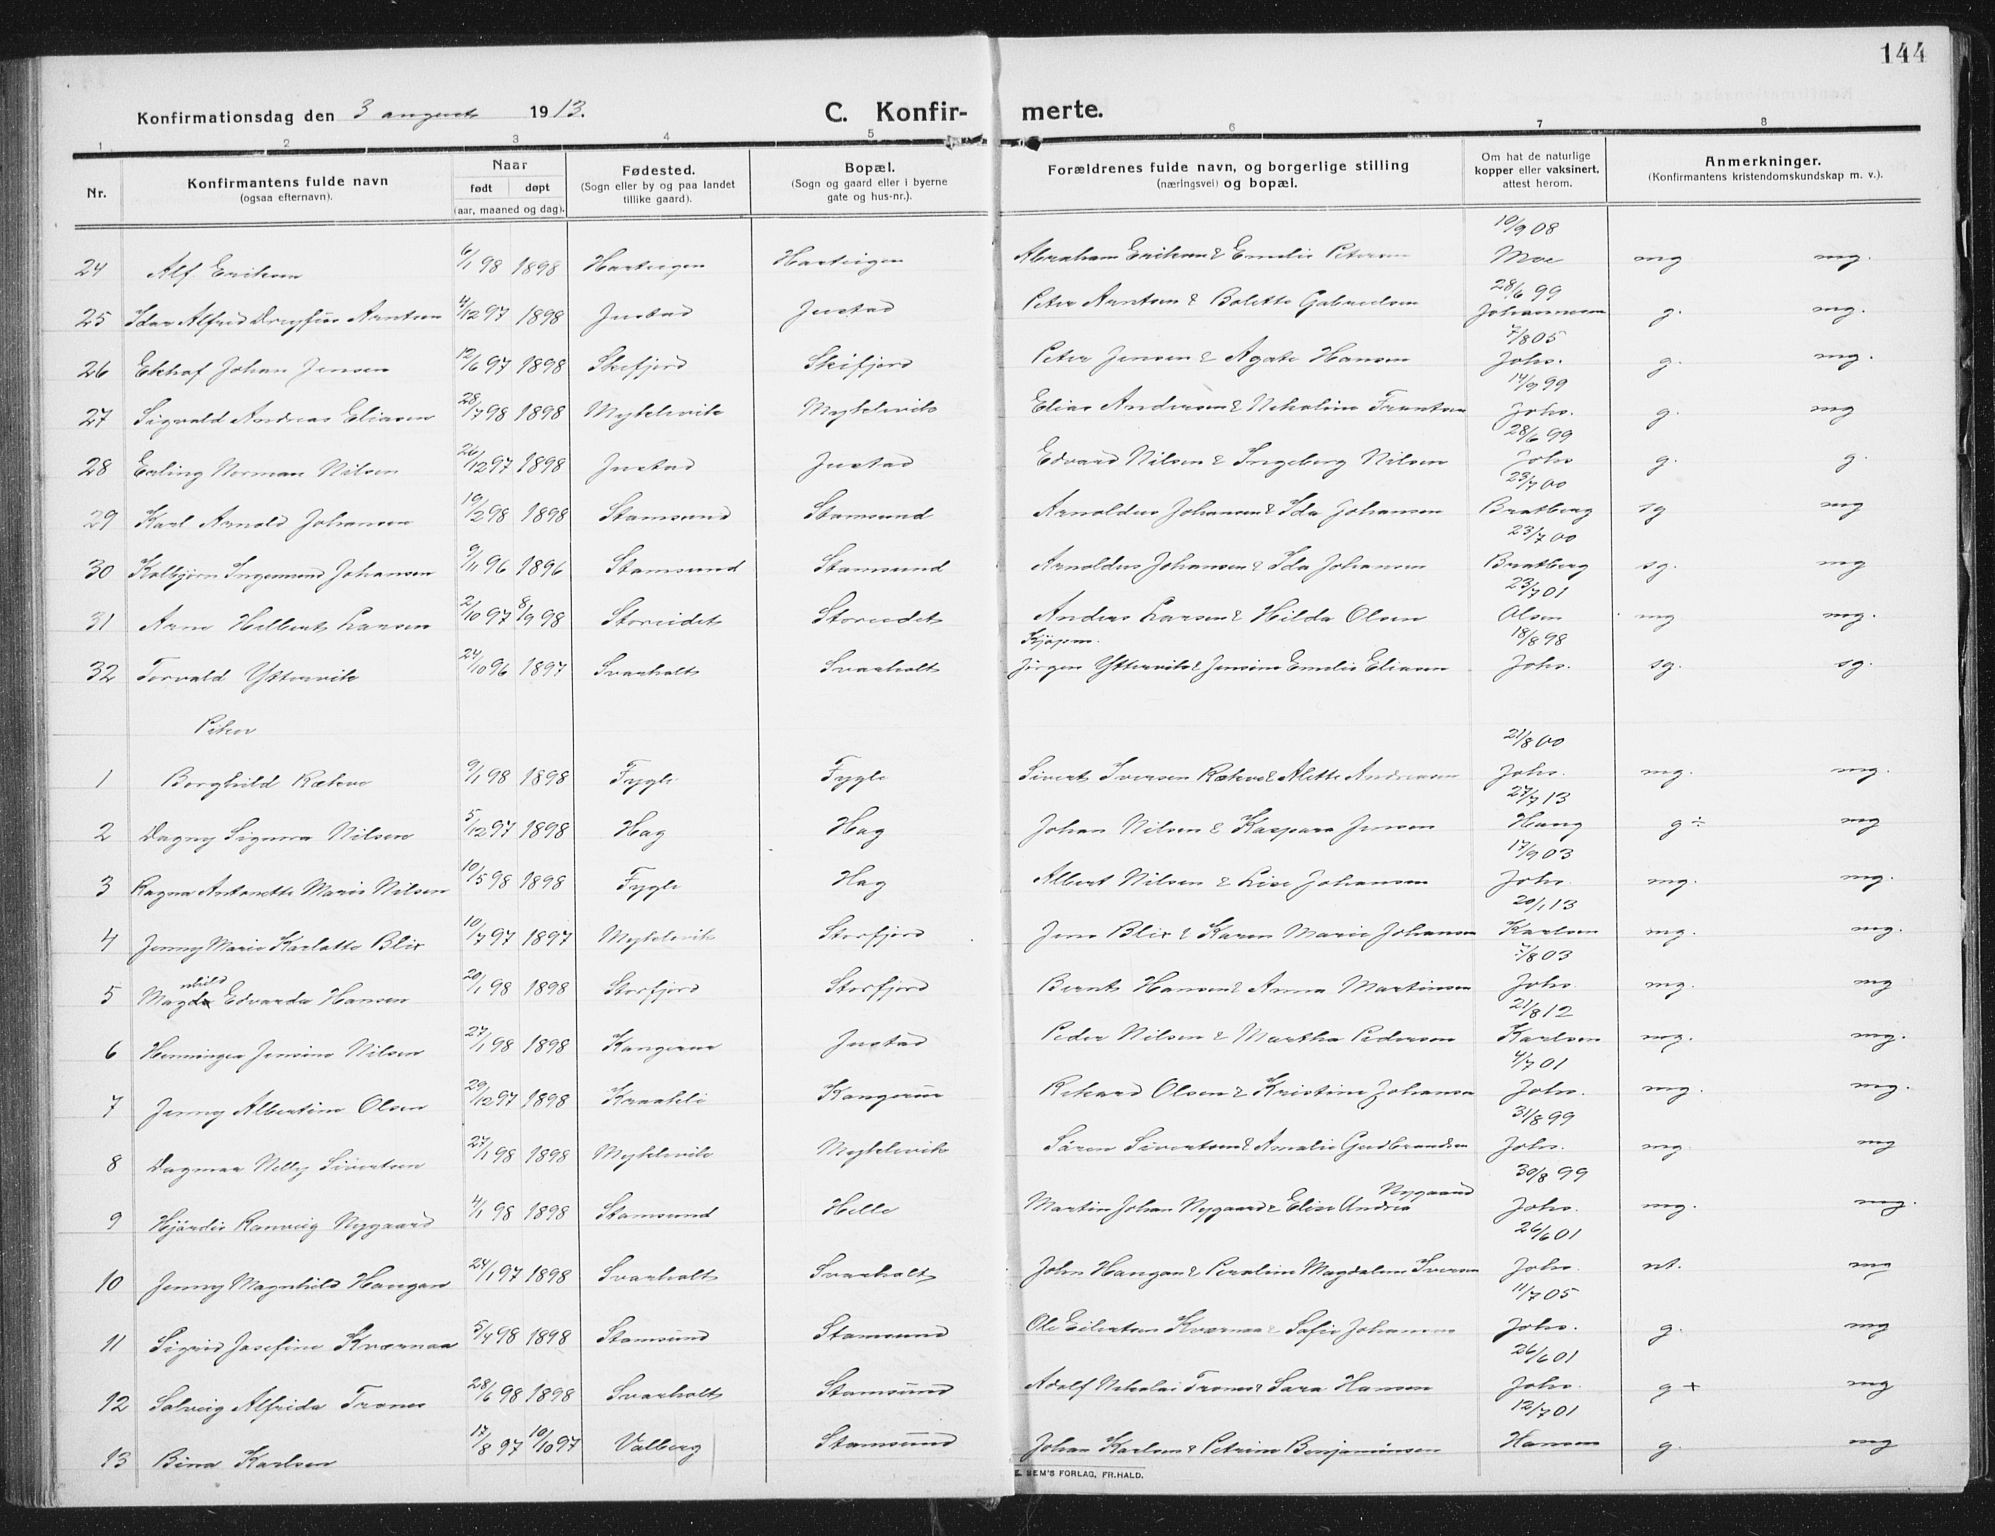 144
Konfirmationsdag den 3 august 1913. C. Konfir- merte.
1 2 3 4 5 6 7 8
Nr. Konfirmantens fulde navn (ogsaa efternavn). Naar født døpt (aar, maaned og dag). Fødested. (Sogn eller by og paa landet tillike gaard). Bopæl. (Sogn og gaard eller i byerne gate og hus-nr.). Forældrenes fulde navn, og borgerlige stilling (næringsvei) og bopæl. Om hat de naturlige kopper eller vaksinert, attest herom. Anmerkninger. (Konfirmantens kristendomskundskap m. v.).
24 Alf Eriksen 6/1 98 1898 Hartvigen Hartvigen Abraham Eriksen & Emelie Petersen 10/9 08 Moe mg mg.
25 Idar Alfred Dreyfus Arntsen 4/12 97 1898 Justad Justad Peter Arntsen & Bolette Gabrielsen 28/6 99 Johannesen g. mg.
26 Ekhof Johan Jensen 12/6 97 1898 Skifjord Skifjord Peter Jensen & Agate Hansen 7/8 05 Johs. g. mg.
27 Sigvald Andreas Eliasen 28/7 98 1898 Myklevik Myklevik Elias Andersen & Nikoline Frantsen 14/9 99 Johs. g. mg
28 Erling Norman Nilsen 26/12 97 1898 Justad Justad Edvard Nilsen & Ingeborg Nilsen 28/6 99 Johs g. g.
29 Karl Arnold Johansen 19/2 98 1898 Stamsund Stamsund Arnoldus Johansen & Ida Johansen 23/7 00 Bratberg sg mg
30 Kolbjørn Ingemund Johansen 9/11 96 1896 Stamsund Stamsund Arnoldus Johansen & Ida Johansen 23/7 00 Bratberg sg. mg
31 Arne Helbert Larsen 2/10 97 8/9 98 Storeidet Storeidet Anders Larsen & Hilda Olsen 23/7 01 Olsen mg mg.
32 Torvald Yttervik 24/10 96 1897 Svarholt Svarholt Jørgen Yttervik & Jensine Emelie Eliasen 18/8 98 Johs. sg. sg.
Piker
1 Borghild Rækve 9/1 98 1898 Fygle Fygle Sivert Iversen Rækve & Alette Andreasen 21/8 00 Johs. mg. mg.
2 Dagny Signora Nilsen 5/12 97 1898 Hag Hag Johan Nilsen & Kaspara Jensen 27/7 13 Haug g÷ mg
3 Ragna Antonette Marie Nilsen 10/5 98 1898 Fygle Hag Albert Nilsen & Lise Johansen 17/9 03 Johs. mg. mg.
4 Jenny Marie Karlotte Blix 10/7 97 1897 Myklevik Storfjord Jens Blix & Karen Marie Johansen 20/1 13 Karlsen mg. mg.
5 Magnhild Edvarda Hansen 20/1 98 1898 Storfjord Storfjord Bernt Hansen & Anna Martinsen 7/8 03 Johs mg. mg
6 Henningea Jensine Nilsen 27/1 98 1898 Kangerur Justad Peder Nilsen & Martha Pedersen 21/8 12 Karlsen mg. mg.
7 Jenny Albertine Olsen 29/12 97 1898 Kraakli Kangerur Rikard Olsen & Kristine Johansen 4/7 01 Johs. mg. mg.
8 Dagmar Nelly Sivertsen 27/1 98 1898 Myklevik Myklevik Søren Sivertsen & Amalie Gudbrandsen 31/8 99 Johs. mg. mg
9 Hjørdis Ranveig Nygaard 4/1 98 1898 Stamsund Helle Martin Johan Nygaard & Elise Andrea Nygaard 30/8 99 Johs. mg. mg.
10 Jenny Magnhild Haugan 24/1 97 1898 Svarholt Svarholt John Haugan & Peraline Magdalene Iversen 26/6 01 Johs. nt. mg
11 Sigrid Josefine Kværnaa 5/4 98 1898 Stamsund Stamsund Ole Eilertsen Kværnaa & Sofie Johansen 11/7 05 Johs. g. mg
12 Solveig Alfrida Trones 28/6 98 1898 Svarholt Stamsund Adolf Nikolai Trones & Sara Hansen 26/6 01 Johs. g+ mg
13 Bina Karlsen 17/8 97 10/10 97 Valberg Stamsund Johan Karlsen & Petrine Benjaminsen 12/7 01 Hansen g. mg
E. SEM'S FORLAG, FR.HALD.